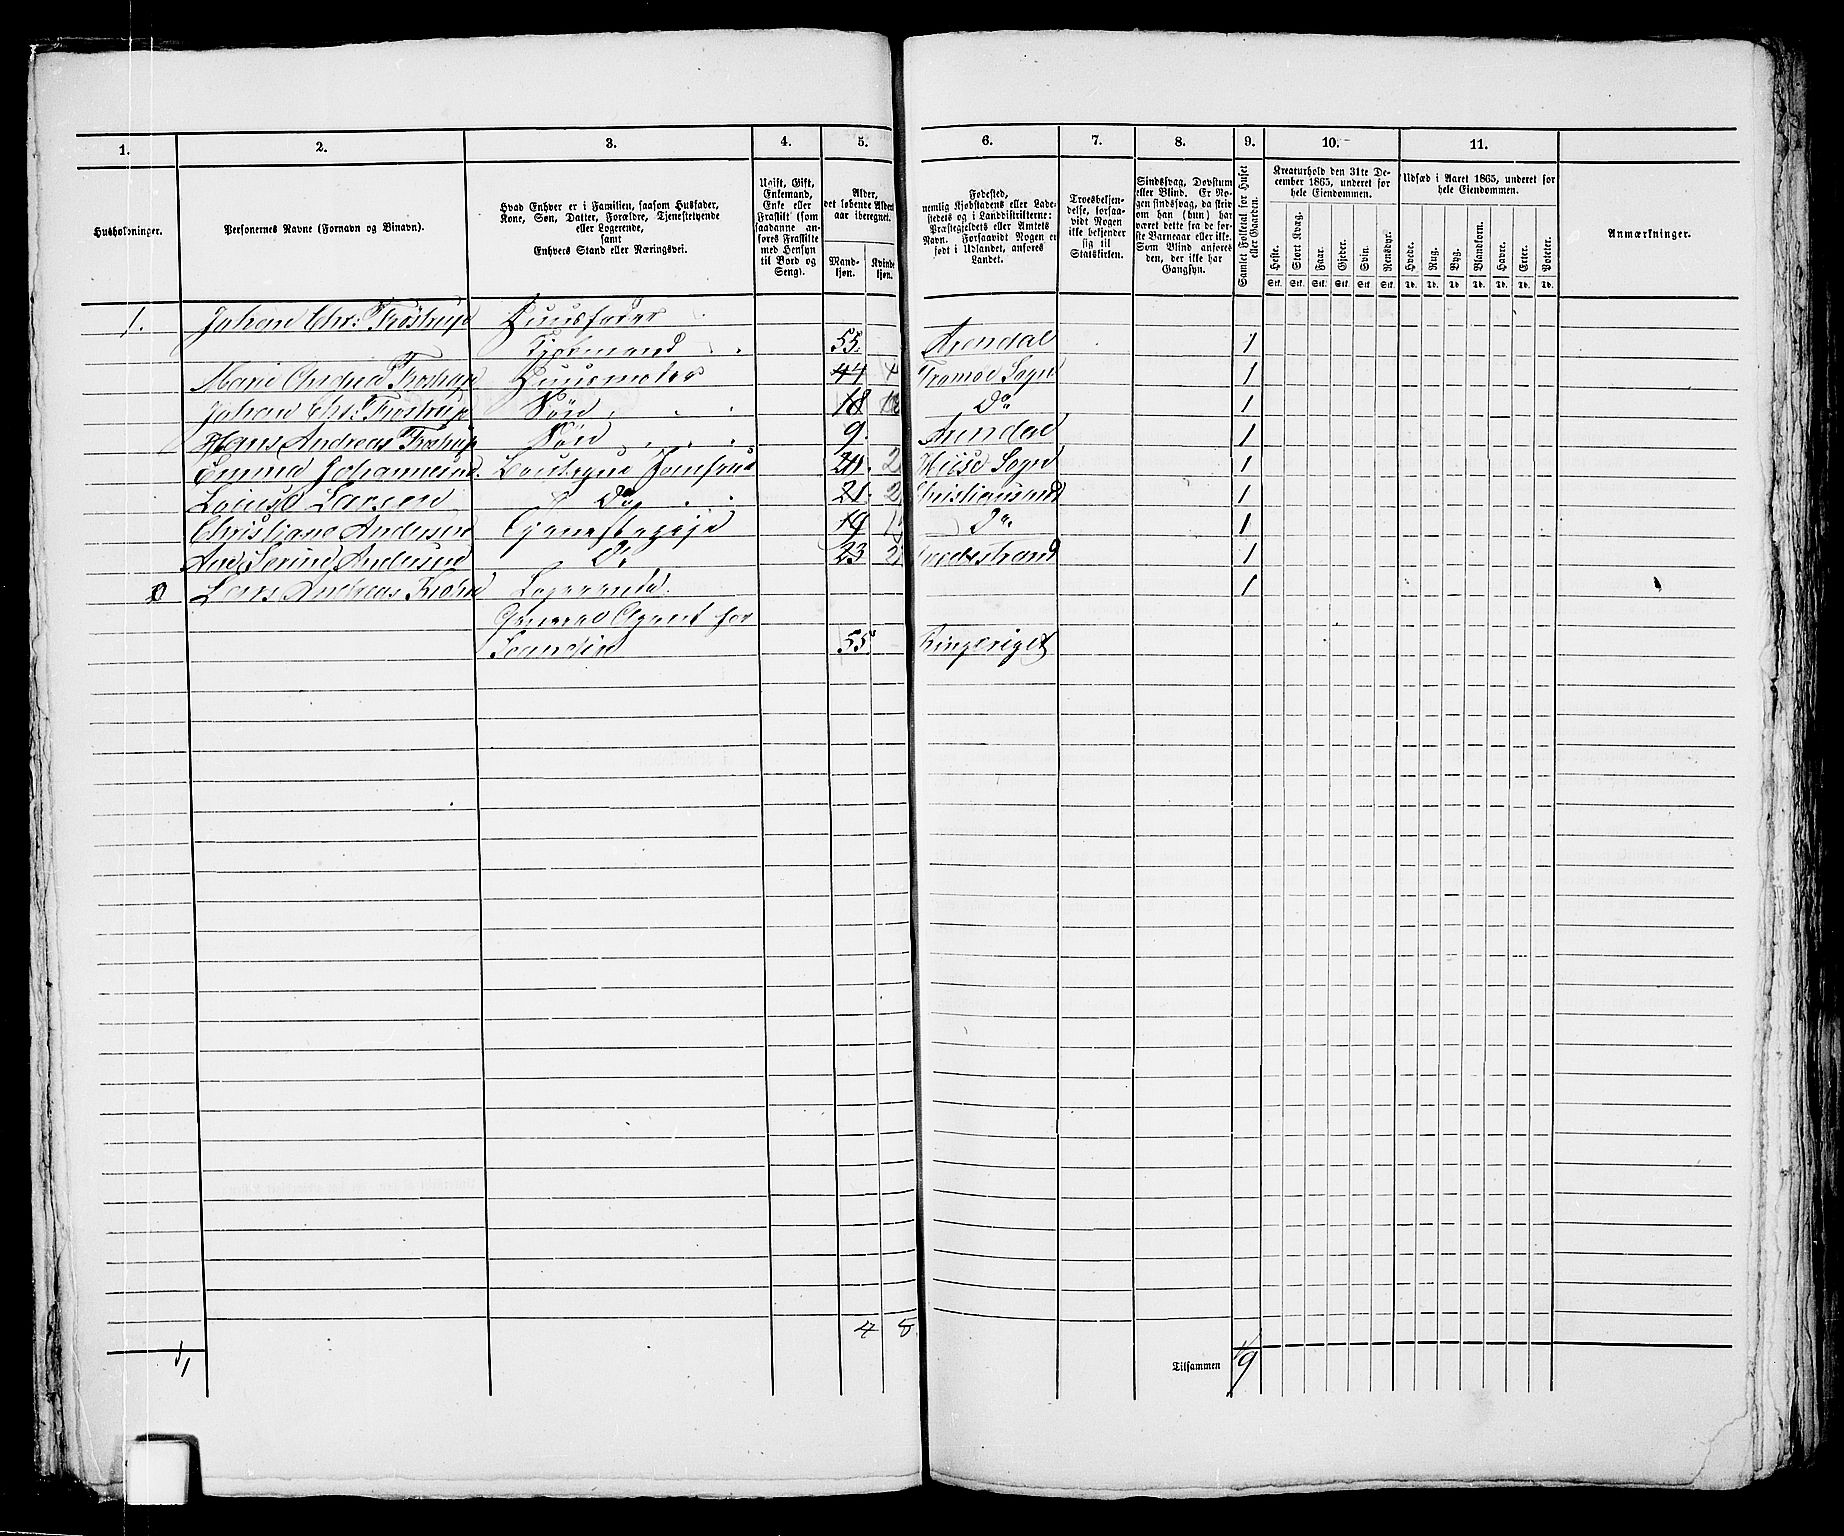 1. 2. 3. 4. 5. 6. 7. 8. 9. 10. 11.
Husholdninger.
Personernes Navne (Fornavn og Binavn).
Hvad Enhver er i Familien, saasom Husfader,
Kone, Søn, Datter, Forældre, Tjenestetyende
eller Logerende,
samt
Enhvers Stand eller Næringsvei.
Ugift, Gift,
Enkemand,
Enke eller
Fraskilt (som
saadanne an-
føres Fraskilte
med Hensyn
til Bord og
Seng).
Alder,
det løbende Alders-
aar iberegnet.
Mand-
kjøn.
Kvinde-
kjøn.
Fødested,
nemlig Kjøbstadens eller Lade-
stedets og i Landdistrikterne:
Præstegjeldets eller Amtets
Navn. Forsaavidt Nogen er
født i Udlandet, anføres
Landet.
Troesbekjen-
delse, forsaa-
vidt Nogen
ikke bekjender
sig til
Statskirken.
Sindssvag, Døvstum
eller Blind. Er No-
gen sindssvag, da skriv
om han (hun) har
været dette fra de før-
ste Barneaar eller ikke.
Som Blind anføres
den, der ikke har
Gangsyn.
Samlet Folketal for Huset
eller Gaarden.
Kreaturhold den 31te De-
cember 1865, underet for
hele Eiendommen.
Heste. Stort Kvæg. Faar. Gjeder. Svin. Rensdyr.
Stk. Stk. Stk. Stk. Stk. Stk.
Udsæd i Aaret 1865, underet for
hele Eiendommen.
Hvede. Rug. Byg. Blandkorn. Havre. Erter. Poteter.
Td. Td. Td. Td. Td. Td. Td.
Anmærkninger.
1. Johan Chr: Frøstrup Huusfader
Kjøbmand 55. Arendal 1
Marie Andrea Frøstrup Huusmoder 44 4 Tromøe Sogn 1
Johan Chr: Frøstrup Søn 18 Do 1
Hans Andreas Frøstrup Søn 9. Arendal 1
Emma Johannesen. Jomfrue 2 Sogn 1
Louise Larsen Do 21. 2 Christiansand 1
Christiane Andersen Tjenestepige 19 1 Do. 1
Serine Andersen Do 23 2 1
Lars Andreas Logerende. 1
General Agent for
55 Ringeriget
4 5
1
Tilsammen 9